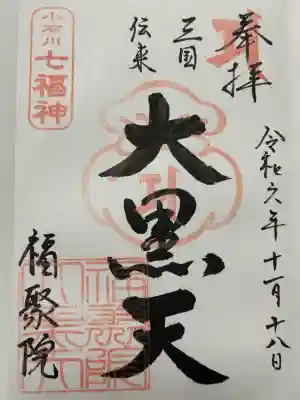 奉拝
令和六年十一月十八日
三国
伝来
大黒天
小石川
七福神
福聚院